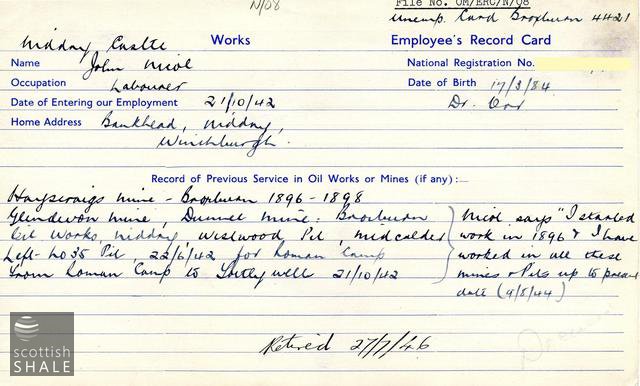 N/08
File No. OM/ERC/N/08
Unemp. Card Broxburn 4421
Niddry Castle Works Employee's Record Card
Name John Nicol National Registration No.
Occupation Labourer Date of Birth 17/3/84
Date of Entering our Employment 21/10/42 Dr.
Home Address Bankhead, Niddry,
Winchburgh.
Record of Previous Service in Oil Works or Mines (if any):—
Hayscraigs mine - Broxburn 1896 - 1898
Glendevon mine, Dunnet mine: Broxburn
Oil Works Niddry, Westwood Pit, midcalder
Left - No 35 Pit, 22/6/42 for Roman Camp
From Roman Camp to Totleywell 21/10/42
Nicol says "I started
work in 1896 & I have
worked in all these
mines & Pits up to present
date (4/8/44)
Retired 27/7/46
scottish
SHALE